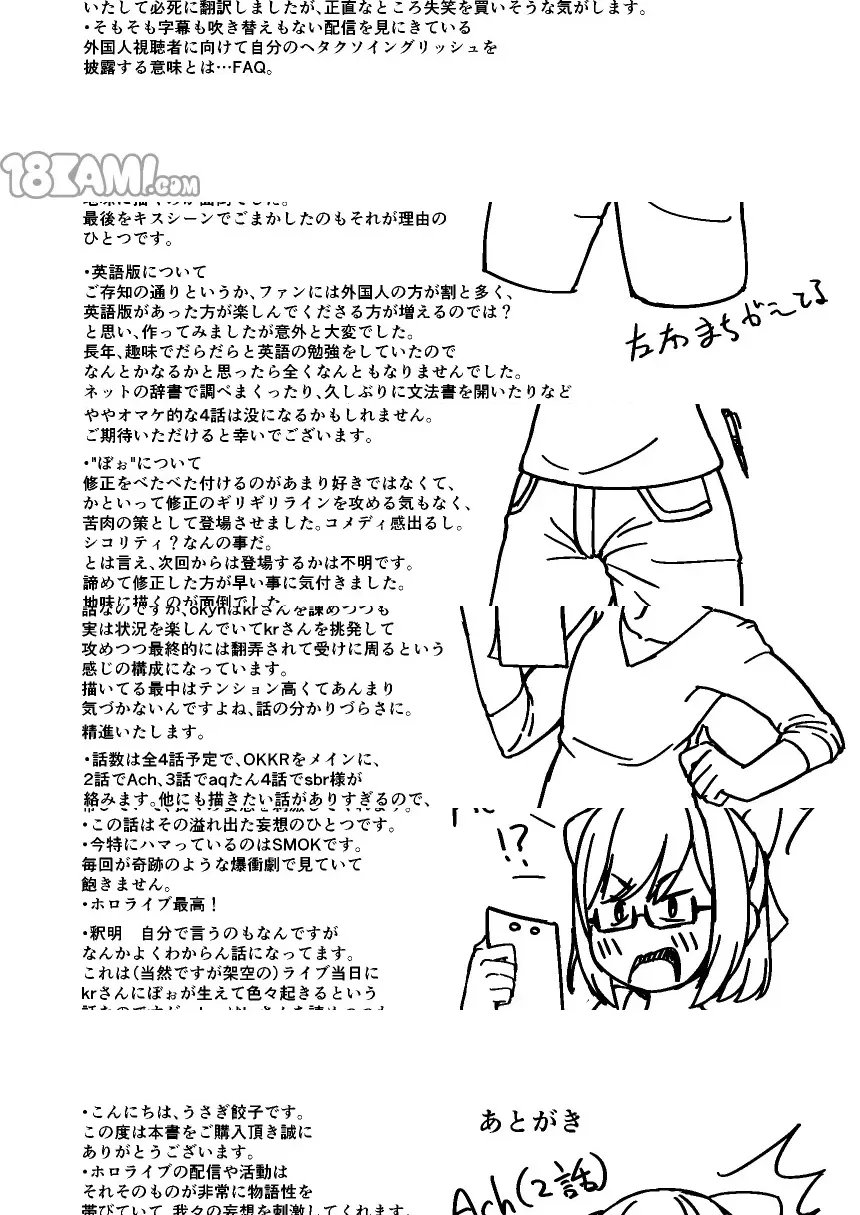 いたして必死に翻訳しましたが、正直なところ失笑を買いそうな気がします。
・そもそも字幕も吹き替えもない配信を見にきている
外国人視聴者に向けて自分のヘタクソイングリッシュを
披露する意味とは…FAQ。
18KAMI.COM
最後をキスシーンでごまかしたのもそれが理由の
ひとつです。
・英語版について
ご存知の通りというか、ファンには外国人の方が割と多く、
英語版があった方が楽しんでくださる方が増えるのでは？
と思い、作ってみましたが意外と大変でした。
長年、趣味でだらだらと英語の勉強をしていたので
なんとかなるかと思ったら全くなんともなりませんでした。
ネットの辞書で調べまくったり、久しぶりに文法書を開いたりなど
左右まちがえてる
ややオマケ的な4話は没になるかもしれません。
ご期待いただけると幸いでございます。
・"ぽぉ"について
修正をべたべた付けるのがあまり好きではなくて、
かといって修正のギリギリラインを攻める気もなく、
苦肉の策として登場させました。コメディ感出るし。
シコリティ？なんの事だ。
とは言え、次回からは登場するかは不明です。
諦めて修正した方が早い事に気付きました。
地味に描くのが面倒でした
話なのですが、okynはkrさんを諌めつつも
実は状況を楽しんでいてkrさんを挑発して
攻めつつ最終的には翻弄されて受けに周るという
感じの構成になっています。
描いてる最中はテンション高くてあんまり
気づかないんですよね、話の分かりづらさに。
精進いたします。
・話数は全4話予定で、OKKRをメインに、
2話でAch、3話でaqたん4話でsbr様が
絡みます。他にも描きたい話がありすぎるので、
・この話はその溢れ出た妄想のひとつです。
・今特にハマっているのはSMOKです。
毎回が奇跡のような爆衝劇で見ていて
飽きません。
・ホロライブ最高！
!?
・釈明　自分で言うのもなんですが
なんかよくわからん話になってます。
これは（当然ですが架空の）ライブ当日に
krさんにぽぉが生えて色々起きるという
・こんにちは、うさぎ餃子です。
この度は本書をご購入頂き誠に
ありがとうございます。
・ホロライブの配信や活動は
それそのものが非常に物語性を
帯びていて、我々の妄想を刺激してくれます。
あとがき
Ach(2話)